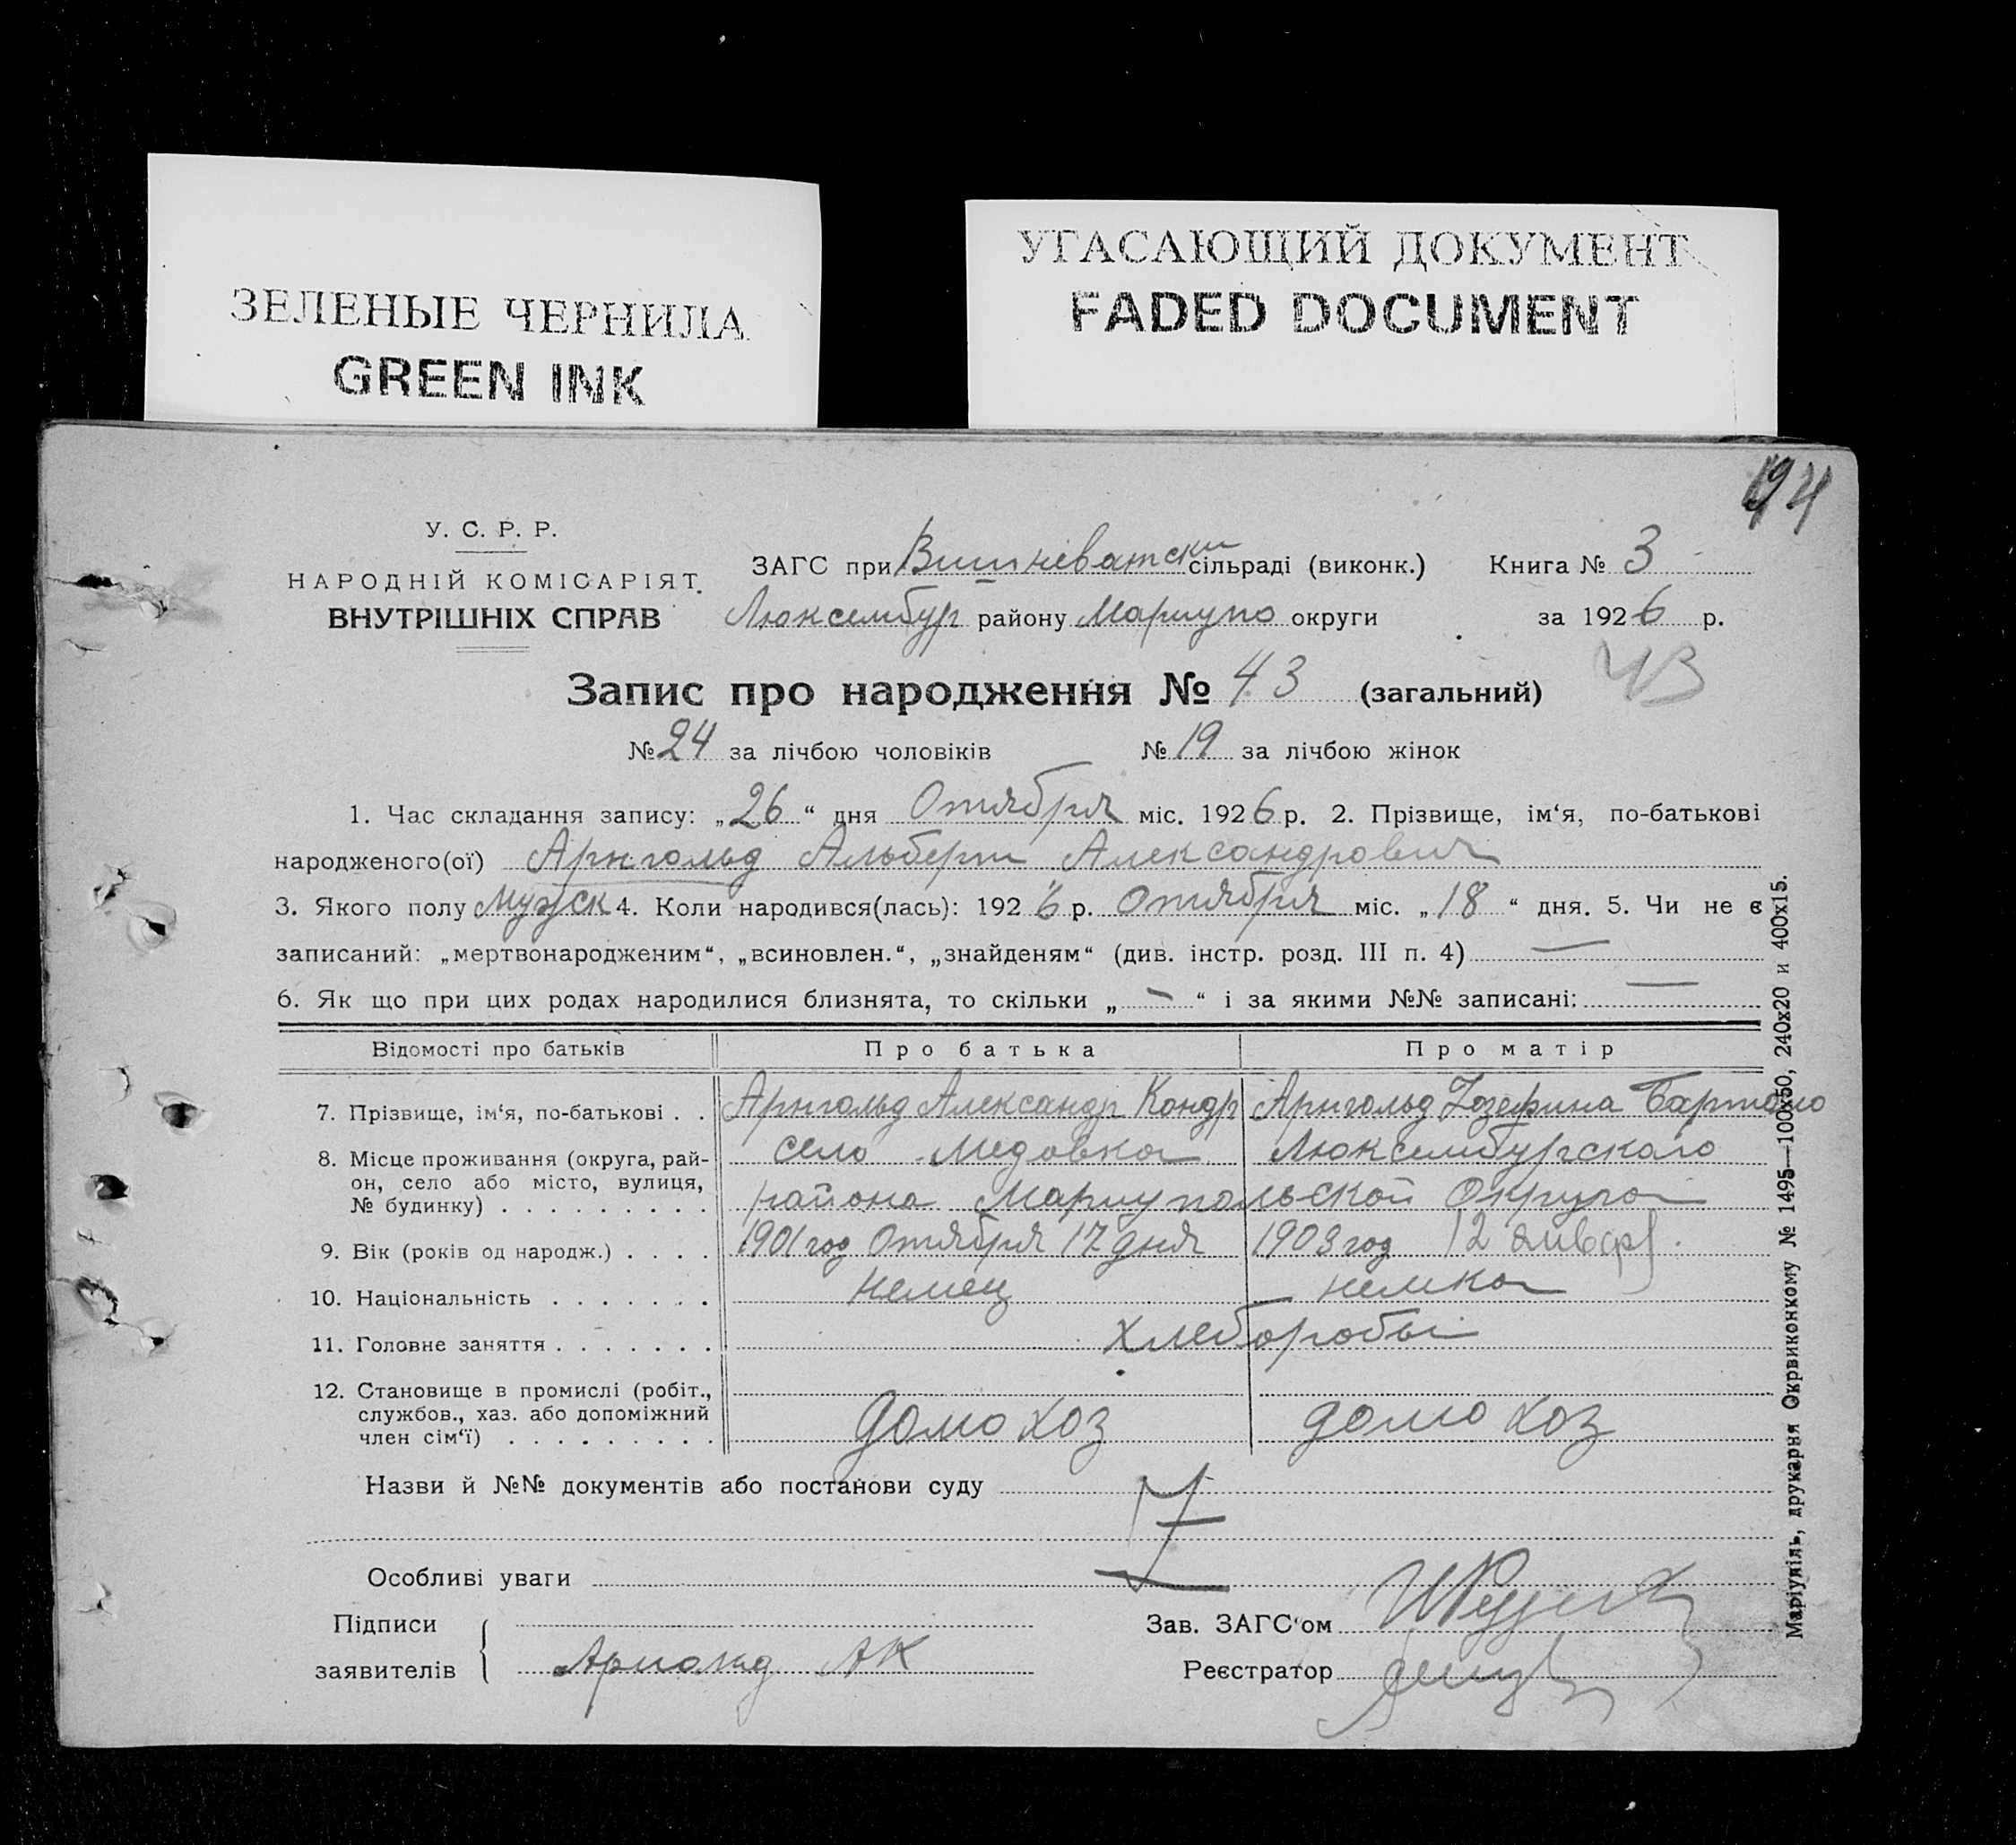 ЗЕЛЕНЫЕ ЧЕРНИЛА
GREEN INK
УГАСАЮЩИЙ ДОКУМЕНТ
FADED DOCUMENT
194
У. С. Р. Р.
НАРОДНІЙ КОМІСАРІЯТ
ВНУТРІШНІХ СПРАВ
ЗАГС при Вишневатски сільраді (виконк.) Книга № 3
Люксембур району Мариупо округи за 1926 р.
Запис про народження № 43 (загальний) 43
№ 24 за лічбою чоловіків № 19 за лічбою жінок
1. Час складання запису: „26“ дня Октября міс. 1926 р. 2. Прізвище, ім‘я, по-батькові
народженого(ої) Арнгольд Альберт Александрович
3. Якого полу мужск 4. Коли народився(лась): 1926 р. Октября міс. „18“ дня. 5. Чи не є
записаний: „мертвонародженим“, „всиновлен.“, „знайденям“ (див. інстр. розд. III п. 4) —
6. Як що при цих родах народилися близнята, то скільки „—“ і за якими №№ записані: —
Відомості про батьків Про батька Про матір
7. Прізвище, ім‘я, по-батькові . . Арнгольд Александр Кондр Арнгольд Иозефина Бартоло
8. Місце проживання (округа, рай- село Медовка Люксембургского
он, село або місто, вулиця,
№ будинку) . . . . . . . . . района Мариупольской Округа
9. Вік (років од народж.) . . . . 1901 год Октября 17 дня 1903 год 12 январ
10. Національність . . . . . . . немец немка
11. Головне заняття . . . . . . . хлеборобы
12. Становище в промислі (робіт.,
службов., хаз. або допоміжний домохоз домохоз
член сім‘ї) . . . . . . . . .
Назви й №№ документів або постанови суду
Особливі уваги
Підписи Зав. ЗАГС‘ом
заявителів Арнолд АК Реєстратор
Маріупіль, друкарня Окрвиконкому № 1495—100х50, 240х20 и 400х15.